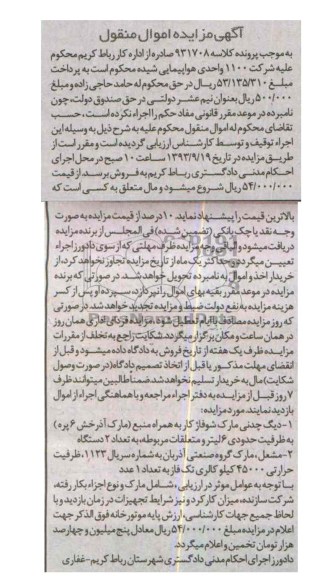 آگهی مزایده اموال منقول
به موجب پرونده کلاسه ۹۳۱۷۰۸ صادره از اداره کار رباط کریم محکوم
علیه شرکت ۱۱۰۰ واحدی هواپیمایی شیده محکوم است به پرداخت
مبلغ ۵۳/۱۳۵/۳۱۰ ریال در حق محکوم له حامد حاجی زاده و مبلغ
۵۰۰/۰۰۰ ریال بعنوان نیم عشر دولتی در حق صندوق دولت، چون
نامبرده در موعد مقرر قانونی مفاد حکم را اجراء نکرده است، حسب
تقاضای محکوم له اموال منقول محکوم علیه به شرح ذیل به وسیله این
اجراء توقیف و توسط کارشناس ارزیابی گردیده است و مقرر است از
طریق مزایده در تاریخ ۱۳۹۳/۹/۱۹ ساعت ۱۰ صبح در محل اجرای
احکام مدنی دادگستری رباط کریم به فروش برسد، از قیمت
۵۴/۰۰۰/۰۰۰ ریال شروع میشود و مال متعلق به کسی است که
بالاترین قیمت را پیشنهاد نماید. ۱۰ درصد از قیمت مزایده به صورت
وجه نقد یا چک بانکی (تضمین شده) فی المجلس از برنده مزایده
دریافت میشود و الباقی وجه مزایده ظرف مهلتی که از سوی دادورز اجراء
تعیین میگردد و حداکثر یک ماه از تاریخ مزایده تجاوز نخواهد کرد، از
خریدار اخذ و اموال به نامبرده تحویل خواهد شد. در صورتی که برنده
مزایده در موعد مقرر بقیه بهای اموال را نپردازد، سپرده او پس از کسر
هزینه مزایده به نفع دولت ضبط و مزایده تجدید خواهد شد. در صورتی
که روز مزایده مصادف با ایام تعطیل شود، مزایده فردای اداری همان روز
در همان ساعت و مکان برگزار میگردد. شکایت راجع به تخلف از مقررات
مزایده ظرف یک هفته از تاریخ فروش به دادگاه داده میشود و قبل از
انقضای مهلت مذکور یا قبل از اتخاذ تصمیم دادگاه (در صورت وصول
شکایت) مال به خریدار تسلیم نخواهد شد. ضمناً طالبین میتوانند ظرف
۷ روز قبل از مزایده به دفتر اجراء مراجعه و با هماهنگی اجراء از اموال
بازدید نمایند. مورد مزایده:
۱- دیگ چدنی مارک، شوفاژ کار به همراه منبع (مارک آذرخش ۶ پره)
به ظرفیت حدودی ۶ لیتر و متعلقات مربوطه، به تعداد ۲ دستگاه
۲- مشعل، مارک گروه صنعتی آذریان به شماره سریال ۱۱۲۳، ظرفیت
حرارتی ۴۵۰۰۰ کیلو کالری تک فاز به تعداد ۱ عدد
با توجه به عوامل موثر در ارزیابی، شامل مارک و نوع اجزاء بکار رفته،
شرکت سازنده، میزان کارکرد و نیز شرایط تجهیزات در زمان بازدید و با
لحاظ جمیع جهات کارشناسی، ارزش پایه موتورخانه فوق الذکر جهت
اعلام در مزایده مبلغ ۵۴/۰۰۰/۰۰۰ ریال معادل پنج میلیون و چهارصد
هزار تومان تخمین و اعلام میگردد.
دادورز اجرای احکام مدنی دادگستری شهرستان رباط کریم-غفاری